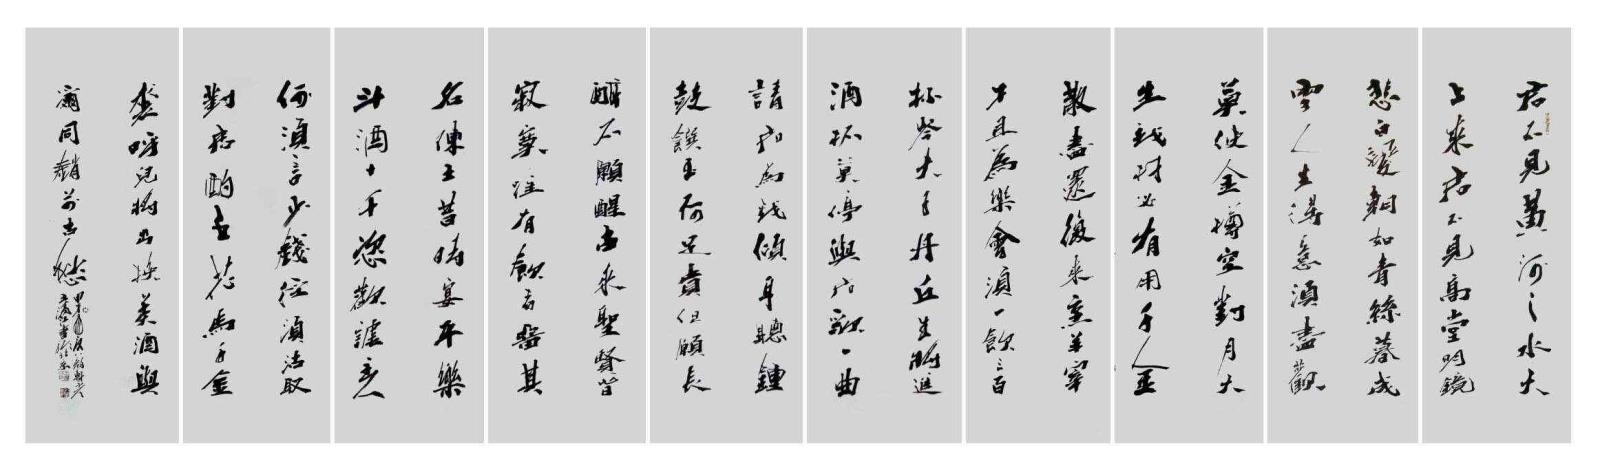 君不見黃河之水天
上來君不見高堂明鏡
悲白髮朝如青絲暮成
雪人生得意須盡歡
莫使金樽空對月天
生我材必有用千金
散盡還復來烹羊宰
牛且為樂會須一飲三百
杯岑夫子丹丘生將進
酒杯莫停與君歌一曲
請君為我傾耳聽鐘
鼓饌玉何足貴但願長
醉不願醒古來聖賢皆
寂寞唯有飲者留其
名陳王昔時宴平樂
斗酒十千恣歡謔主人
何須言少錢徑須沽取
對君酌五花馬千金
裘呼兒將出換美酒與
爾同銷萬古愁